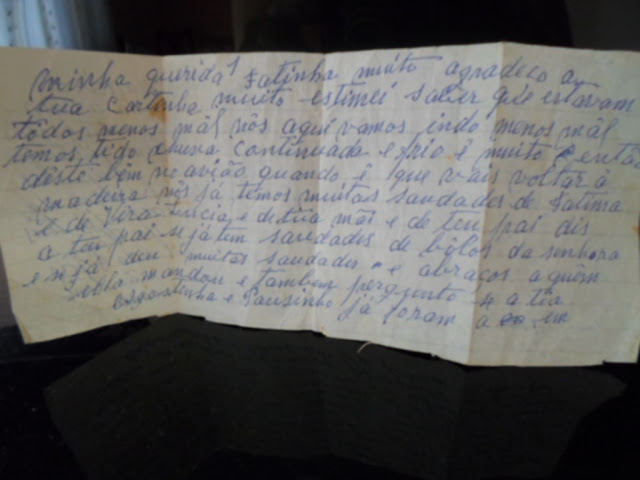 minha querida Fatinha muito agradeço a
tua cartinha muito estimei saber que estavam
tôdos menos mál nós aqui vamos indo menos mál
temos tido chuva continuada e frio é muito então
déste bem no avião quando é que vais voltar á
madeira nós já temos muitas saudades de Fatima
e de Vera Lucia e de tua mãe e de teu pai dis
a teu pai se já tem saudades de bôlos da senhora
e se já deu muitas saudades e abraços a quem
ella mandou e tambem pergunto a tia
e Pausinho já foram a